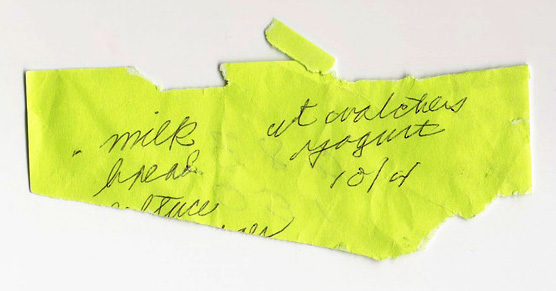 milk
bread
lettuce
wt watchers
yogurt